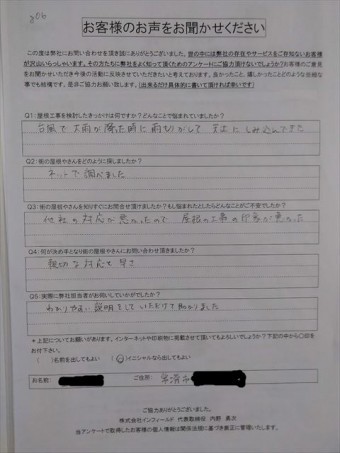 お客様のお声をお聞かせください
この度は弊社にお問い合わせを頂き誠にありがとうございました。世の中には弊社の存在やサービスをご存知ないお客様
が沢山いらっしゃいます。その方たちに弊社をよく知って頂くためのアンケートにご協力頂けないでしょうか？お客様のご意見
をお聞かせいただき今後の活動に反映させていただきたいと考えております。良かったこと、嬉しかったことどのような些細な
事でも結構です。是非ご協力お願い致します。(出来るだけ具体的に書いて頂ければ幸いです)
Q1：屋根工事を検討したきっかけは何ですか？どんなことで悩まれていましたか？
台風で大雨が降った時に雨切りがして 天井にしみ込んできた
Q2：街の屋根やさんをどのように探しましたか？
ネットで調べました
Q3：街の屋根やさんを知りすぐにお問合せ頂けましたか？もし悩まれたとしたらどんなことがご不安でしたか？
他社の対応が悪かったので 屋根の工事の印象が悪かった
Q4：何が決め手となり街の屋根やさんにお問い合わせ頂きましたか？
親切な対応と早さ
Q5：実際に弊社担当者がお伺いしていかがでしたか？
わかりやすい説明をしていただけて助かりました
＊上記についてお願いがあります。インターネットや印刷物に掲載させて頂いてもよろしいでしょうか？下記の中から〇印を
お付下さい。
( )名前を出してもよい (〇)イニシャルなら出してもよい
お名前: ご住所: 常滑市
ご協力ありがとうございました。
株式会社インフィールド 代表取締役 内野 高次
当アンケートで取得したお客様の個人情報は関係法規に基づき厳正に管理いたします。